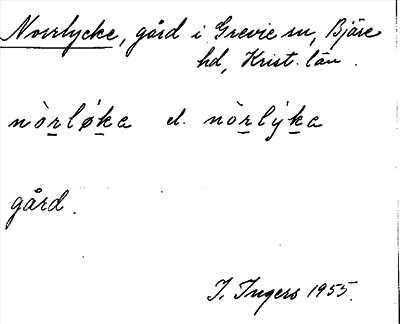 Norrlycke, gård i Grevie sn, Bjäre
hd, Krist. län.
nòrløka el. nòrlýka
gård.
I. Ingers 1955.